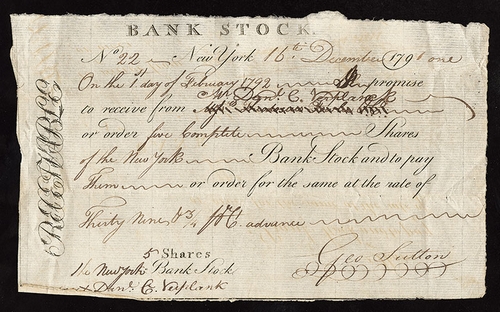 BANK STOCK.
No 22 New York 16th December 1791 one
On the 1st day of February 1792 I promise
to receive from Danl C. Verplanck
or order five Complete Shares
of the New York Bank Stock and to pay
Them or order for the same at the rate of
Thirty Nine & 3/4 advance
Geo Sutton
5 Shares
the New York Bank Stock
Danl. C. Verplank
RECEIVABLE